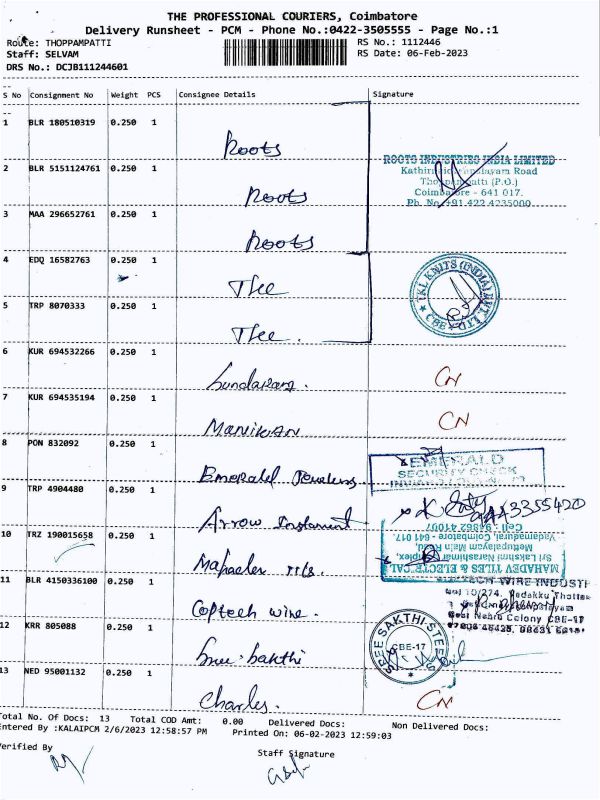 THE PROFESSIONAL COURIERS, Coimbatore
Delivery Runsheet - PCM - Phone No.:0422-3505555 - Page No.:1
Route: THOPPAMPATTI
RS No.: 1112446
Staff: SELVAM
RS Date: 06-Feb-2023
DRS No.: DCJB111244601
S No Consignment No Weight PCS Consignee Details Signature
1 BLR 180510319 0.250 1 Roots
ROOTS INDUSTRIES INDIA LIMITED
2 BLR 5151124761 0.250 1 Roots
Road
(P.O.)
Coimbatore - 641 017.
Ph. No +91 422 4235000
3 MAA 296652761 0.250 1 Roots
4 EDQ 16582763 0.250 1 Tkl
TKL KNITS (INDIA) PVT. LTD
CBE
5 TRP 8070333 0.250 1 Tkl.
6 KUR 694532266 0.250 1 Sundaram. CN
7 KUR 694535194 0.250 1 Manikan CN
8 PON 832092 0.250 1 Emerald Jewelers
EMERALD
SECURITY CHECK
9 TRP 4904480 0.250 1 Arrow Instrument
10 TRZ 190015658 0.250 1 Mahadev tils.
MAHADEV TILES & ELECTRICAL
Sri Lakshmi Narasimar Complex,
Mettupalayam Main Road,
Vadamadurai, Coimbatore - 641 017.
Cell : 94862 41097
11 BLR 4150336100 0.250 1 Coptech wire.
WIRE INDUSTRI
Nehru Colony CBE-17
12 KRR 805088 0.250 1 Sree. Sakthi
SREE SAKTHI STEEL
CBE-17
13 NED 95001132 0.250 1 Charles. CN
Total No. Of Docs: 13 Total COD Amt: 0.00 Delivered Docs: Non Delivered Docs:
Entered By :KALAIPCM 2/6/2023 12:58:57 PM Printed On: 06-02-2023 12:59:03
Verified By
Staff Signature